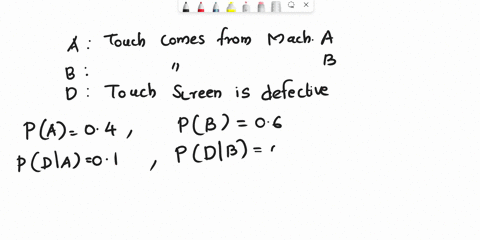 A : Touch comes from Mach. A
B : " B
D : Touch Screen is defective
P(A) = 0.4 , P(B) = 0.6
P(D|A) = 0.1 , P(D|B) =